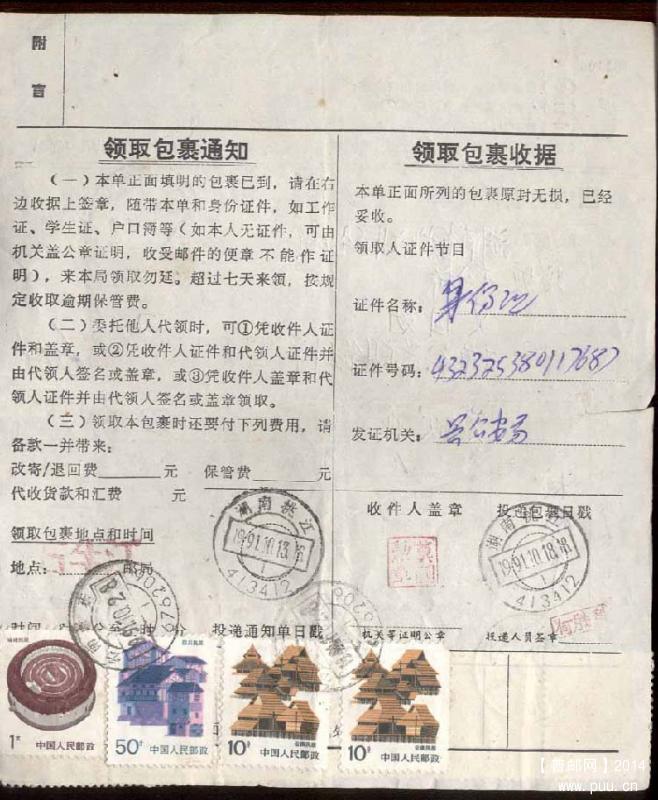 附
言
领取包裹通知
(一)本单正面填明的包裹已到,请在右
边收据上签章,随带本单和身份证件,如工作
证、学生证、户口簿等(如本人无证件,可由
机关盖公章证明,收受邮件的便章不能作证
明),来本局领取勿延。超过七天来领,按规
定收取逾期保管费。
(二)委托他人代领时,可①凭收件人证
件和盖章,或②凭收件人证件和代领人证件并
由代领人签名或盖章,或③凭收件人盖章和代
领人证件并由代领人签名或盖章领取。
(三)领取本包裹时还要付下列费用,请
备款一并带来:
改寄/退回费 元 保管费 元
代收货款和汇费 元
领取包裹地点和时间
地点:
时间
投递通知单日戳
领取包裹收据
本单正面所列的包裹原封无损,已经
妥收。
领取人证件节目
证件名称:身份证
证件号码:432325380117687
发证机关:县公安局
收件人盖章 投递包裹日戳
机关等证明公章 投递人员签章
湖南桃江
1991.10.13.
413412
湖南桃江
1991.10.18.18
413412
1元
中国人民邮政
50分
中国人民邮政
10分
中国人民邮政
10分
中国人民邮政
【普邮网】2014
www.puu.cn